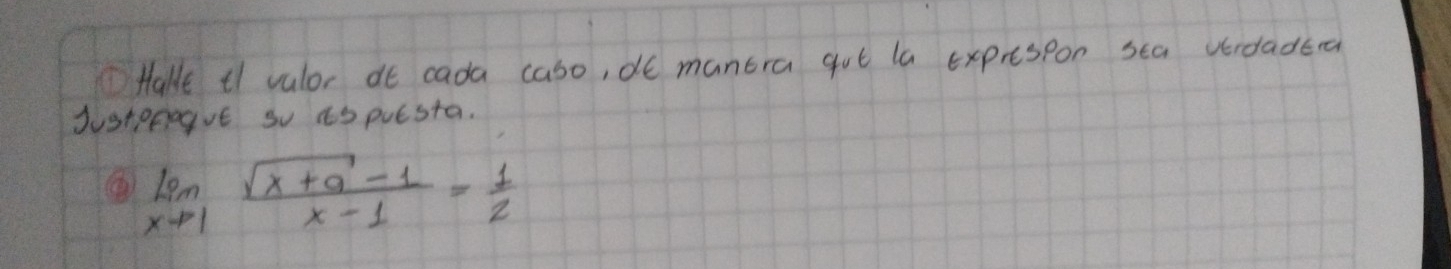 ① Halle el valor de cada caso, de manera que la expresion sea verdadera
Justifique su respuesta.
ⓐ lim √(x+a) - 1 / x - 1 = 1/2
x→1